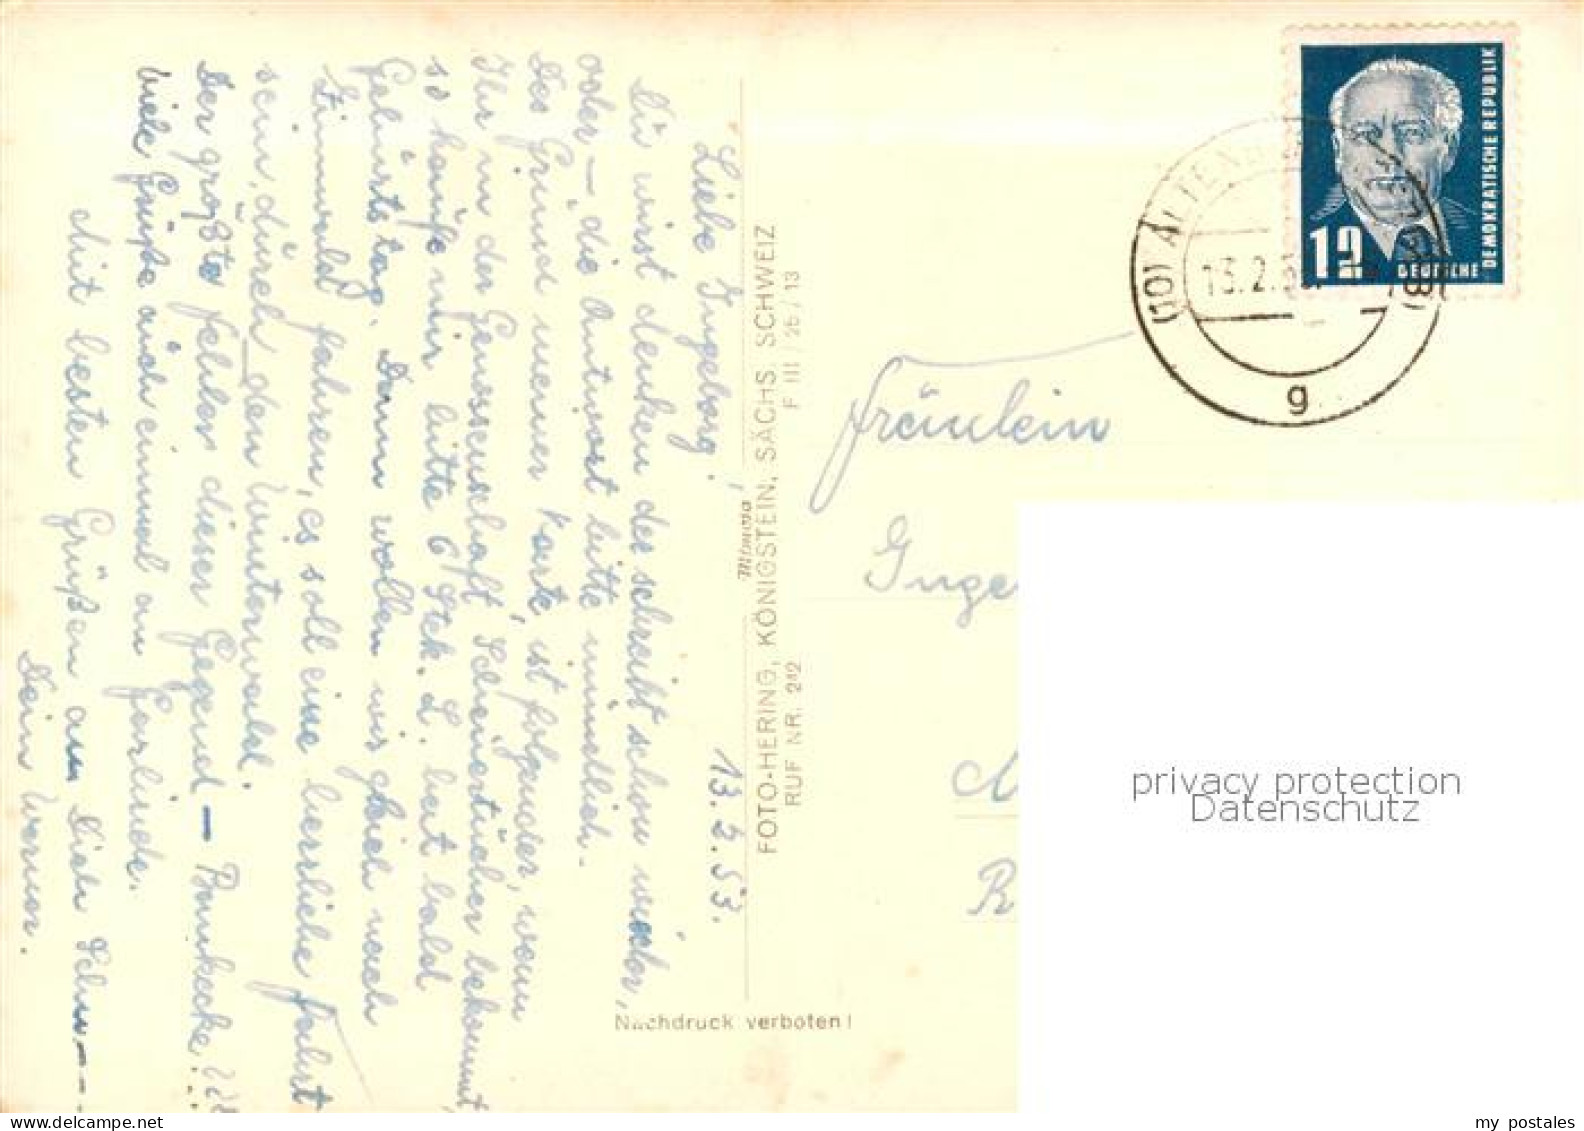 13.2.53.
Liebe Ingeborg!
Du wirst denken der schreibt schon wieder,
oder – die Antwort bitte mündlich.
Des Grund meiner Karte ist folgender, wenn
Ihr in der Genossenschaft Scheuertücher bekommt,
so kaufe mir bitte 6 Stck. L. hat bald
Geburtstag. Dann wollen wir gleich nach
Zinnwald fahren, es soll eine herrliche Fahrt
sein, durch den Winterwald.
Der größte Fehler dieser Gegend –
Viele Grüße auch einmal an Gerlinde.
Mit besten Grüßen an Dich
Dein Werner.
Mimosa
FOTO-HERING, KÖNIGSTEIN, SÄCHS. SCHWEIZ
RUF NR. 242 F III / 26 / 13
Nachdruck verboten!
12
DEUTSCHE
DEMOKRATISCHE REPUBLIK
(10) ALTENB
13.2.
g
Fräulein
Inge
R
privacy protection
Datenschutz
my postales
www.delcampe.net